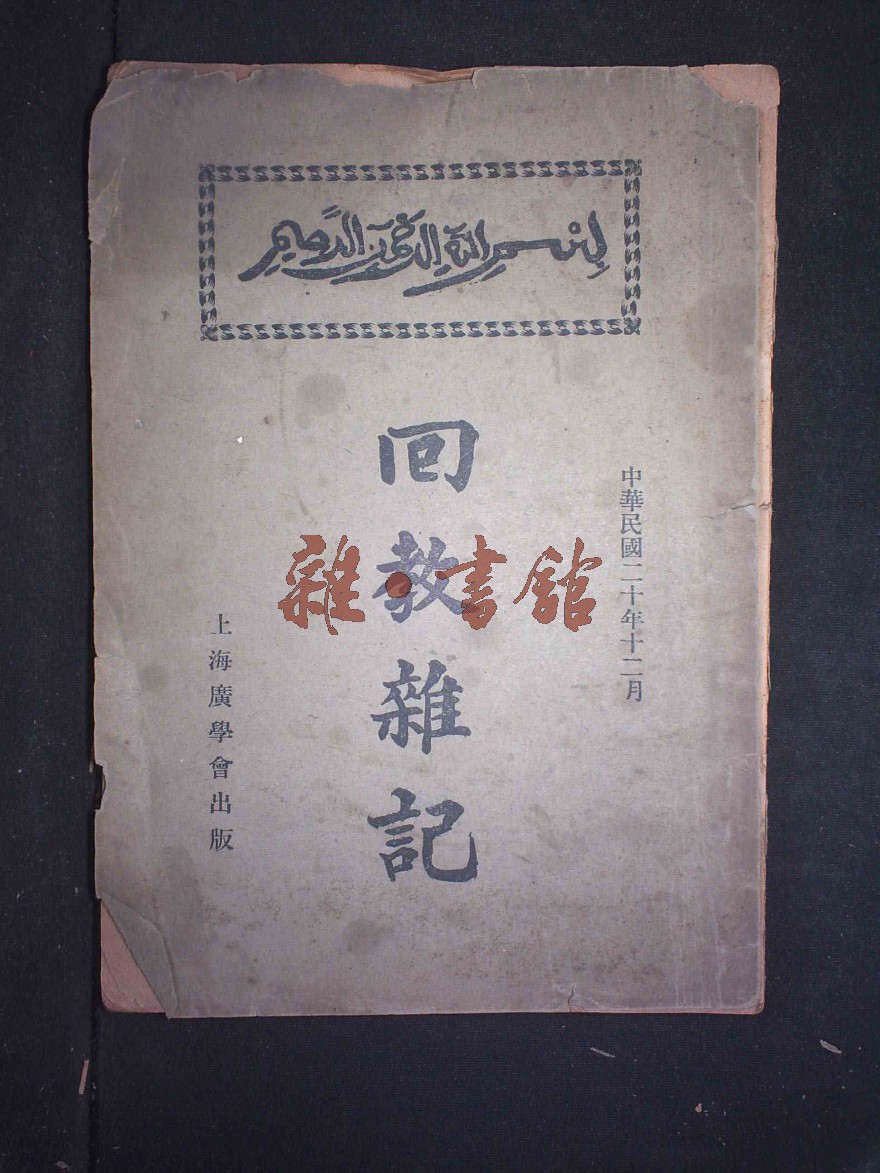 بسم الله الرحمن الرحيم
中華民國二十年十二月
回教雜記
上海廣學會出版
雜·書館